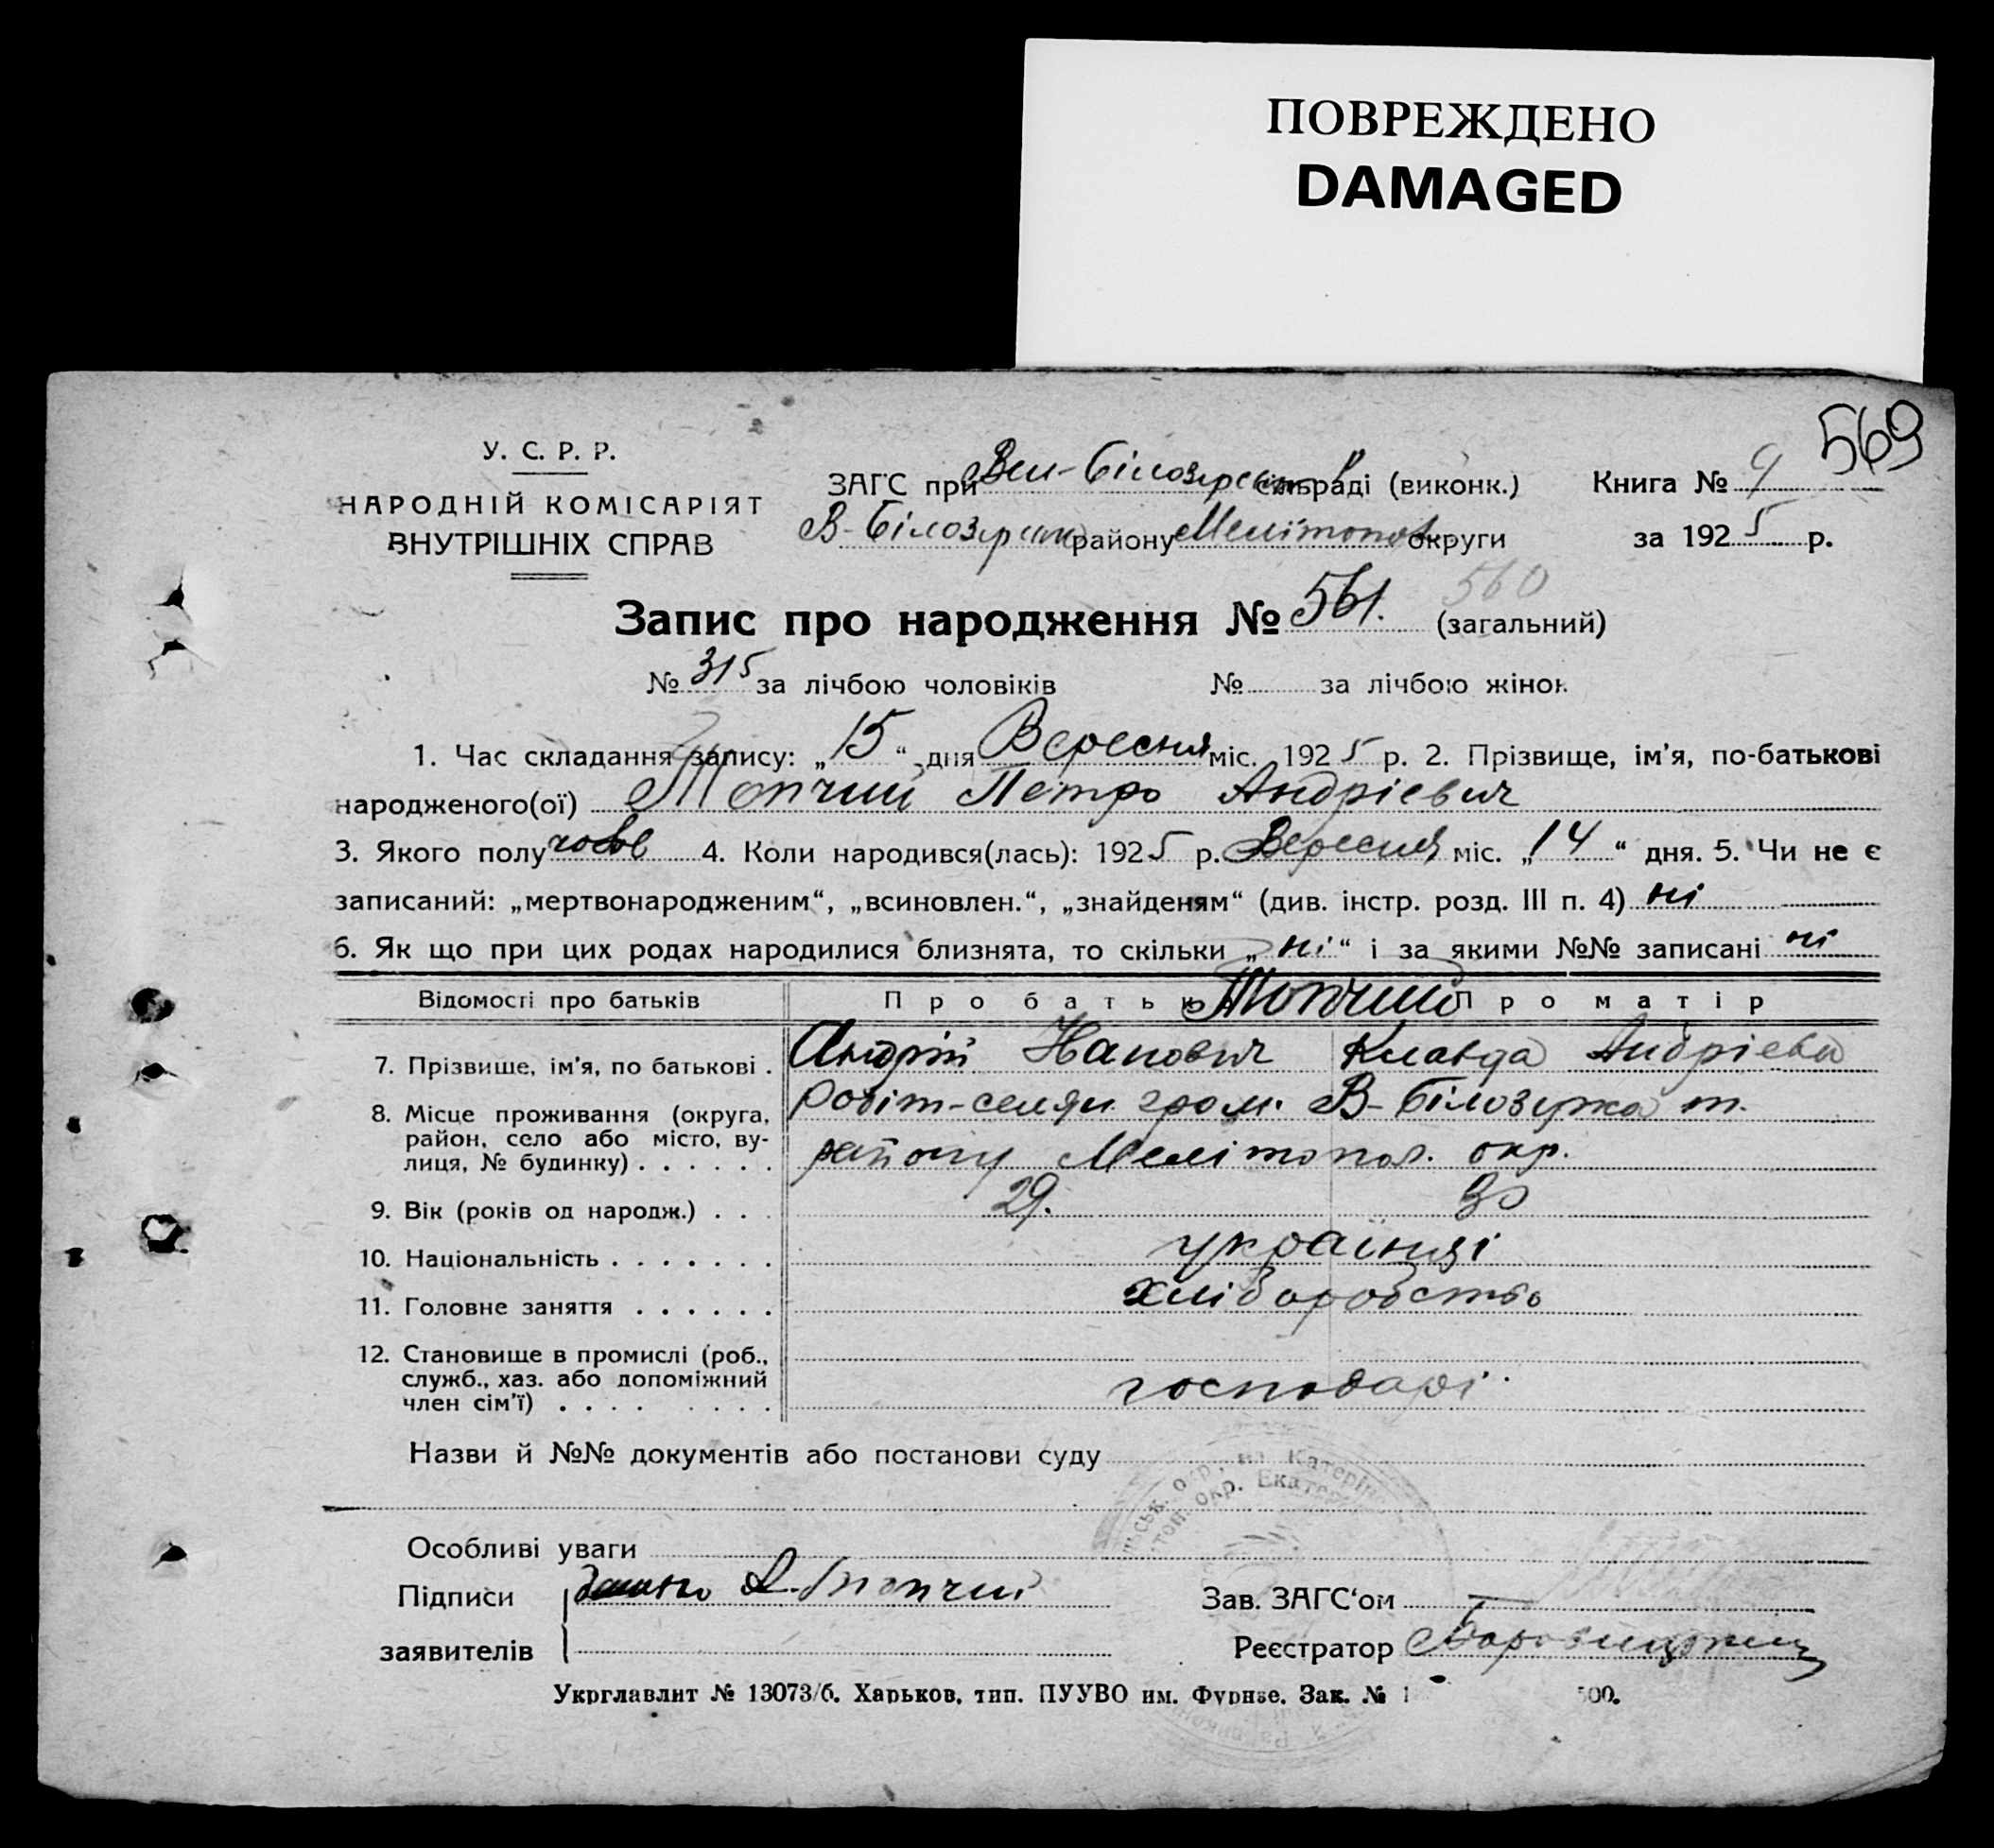 ПОВРЕЖДЕНО
DAMAGED
569
У. С. Р. Р.
НАРОДНІЙ КОМІСАРІЯТ
ВНУТРІШНІХ СПРАВ
ЗАГС при Вел-Білозерськ сільраді (виконк.)
В-Білозирськ району Мелітопол округи
Книга № 9
за 1925 р.
Запис про народження № 561. (загальний)
560
№ 315 за лічбою чоловіків № за лічбою жінок
1. Час складання запису: „15“ дня Вересня міс. 1925 р. 2. Прізвище, ім'я, по-батькові
народженого(ої) Топчий Петро Андріевич
3. Якого полу чолов 4. Коли народився(лась): 1925 р. Вересня міс. „14“ дня. 5. Чи не є
записаний: „мертвонародженим“, „всиновлен.“, „знайденям“ (див. інстр. розд. III п. 4) ні
6. Як що при цих родах народилися близнята, то скільки „ні“ і за якими №№ записані ні
Відомості про батьків Про батька Топчий Про матір
7. Прізвище, ім'я, по батькові . Андрій Клавда Андріевна
8. Місце проживання (округа, Робіт-селян гром. В-Білозирка
район, село або місто, ву-
лиця, № будинку) . . . . . . району Мелітопол. окр.
9. Вік (років од народж.) . . . 29. 30
10. Національність . . . . . . . українці
11. Головне заняття . . . . . . хліборобство
12. Становище в промислі (роб.,
служб., хаз. або допоміжний
член сім'ї) . . . . . . . . господарі
Назви й №№ документів або постанови суду
Особливі уваги
Підписи батько А. Топчий Зав. ЗАГС'ом
заявителів Реєстратор
Укрглавлит № 13073/б. Харьков, тип. ПУУВО им. Фрунзе. Зак. № 1 500.